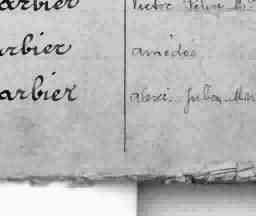 arbier Victor Felix M
arbier amédée
arbier alexi. Julien Mar